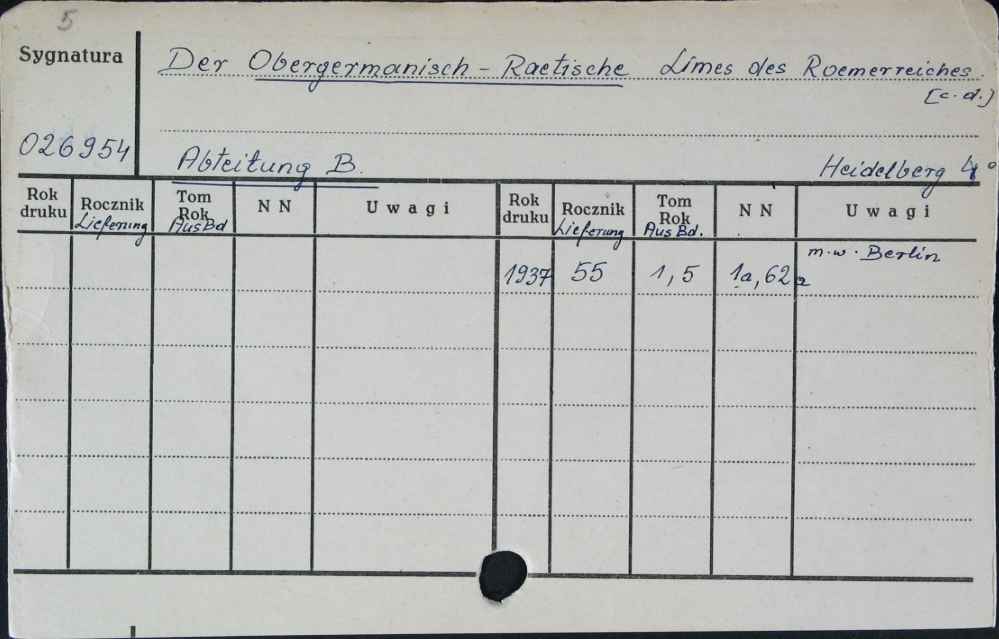 5
Sygnatura
Der Obergermanisch - Raetische Limes des Roemerreiches.
[c.d.]
026954
Abteitung B.
Heidelberg 4°
Rok druku Rocznik Lieferung Tom Rok AusBd NN Uwagi Rok druku Rocznik Lieferung Tom Rok Aus Bd. NN Uwagi
m.w. Berlin
1937 55 1,5 1a, 62a